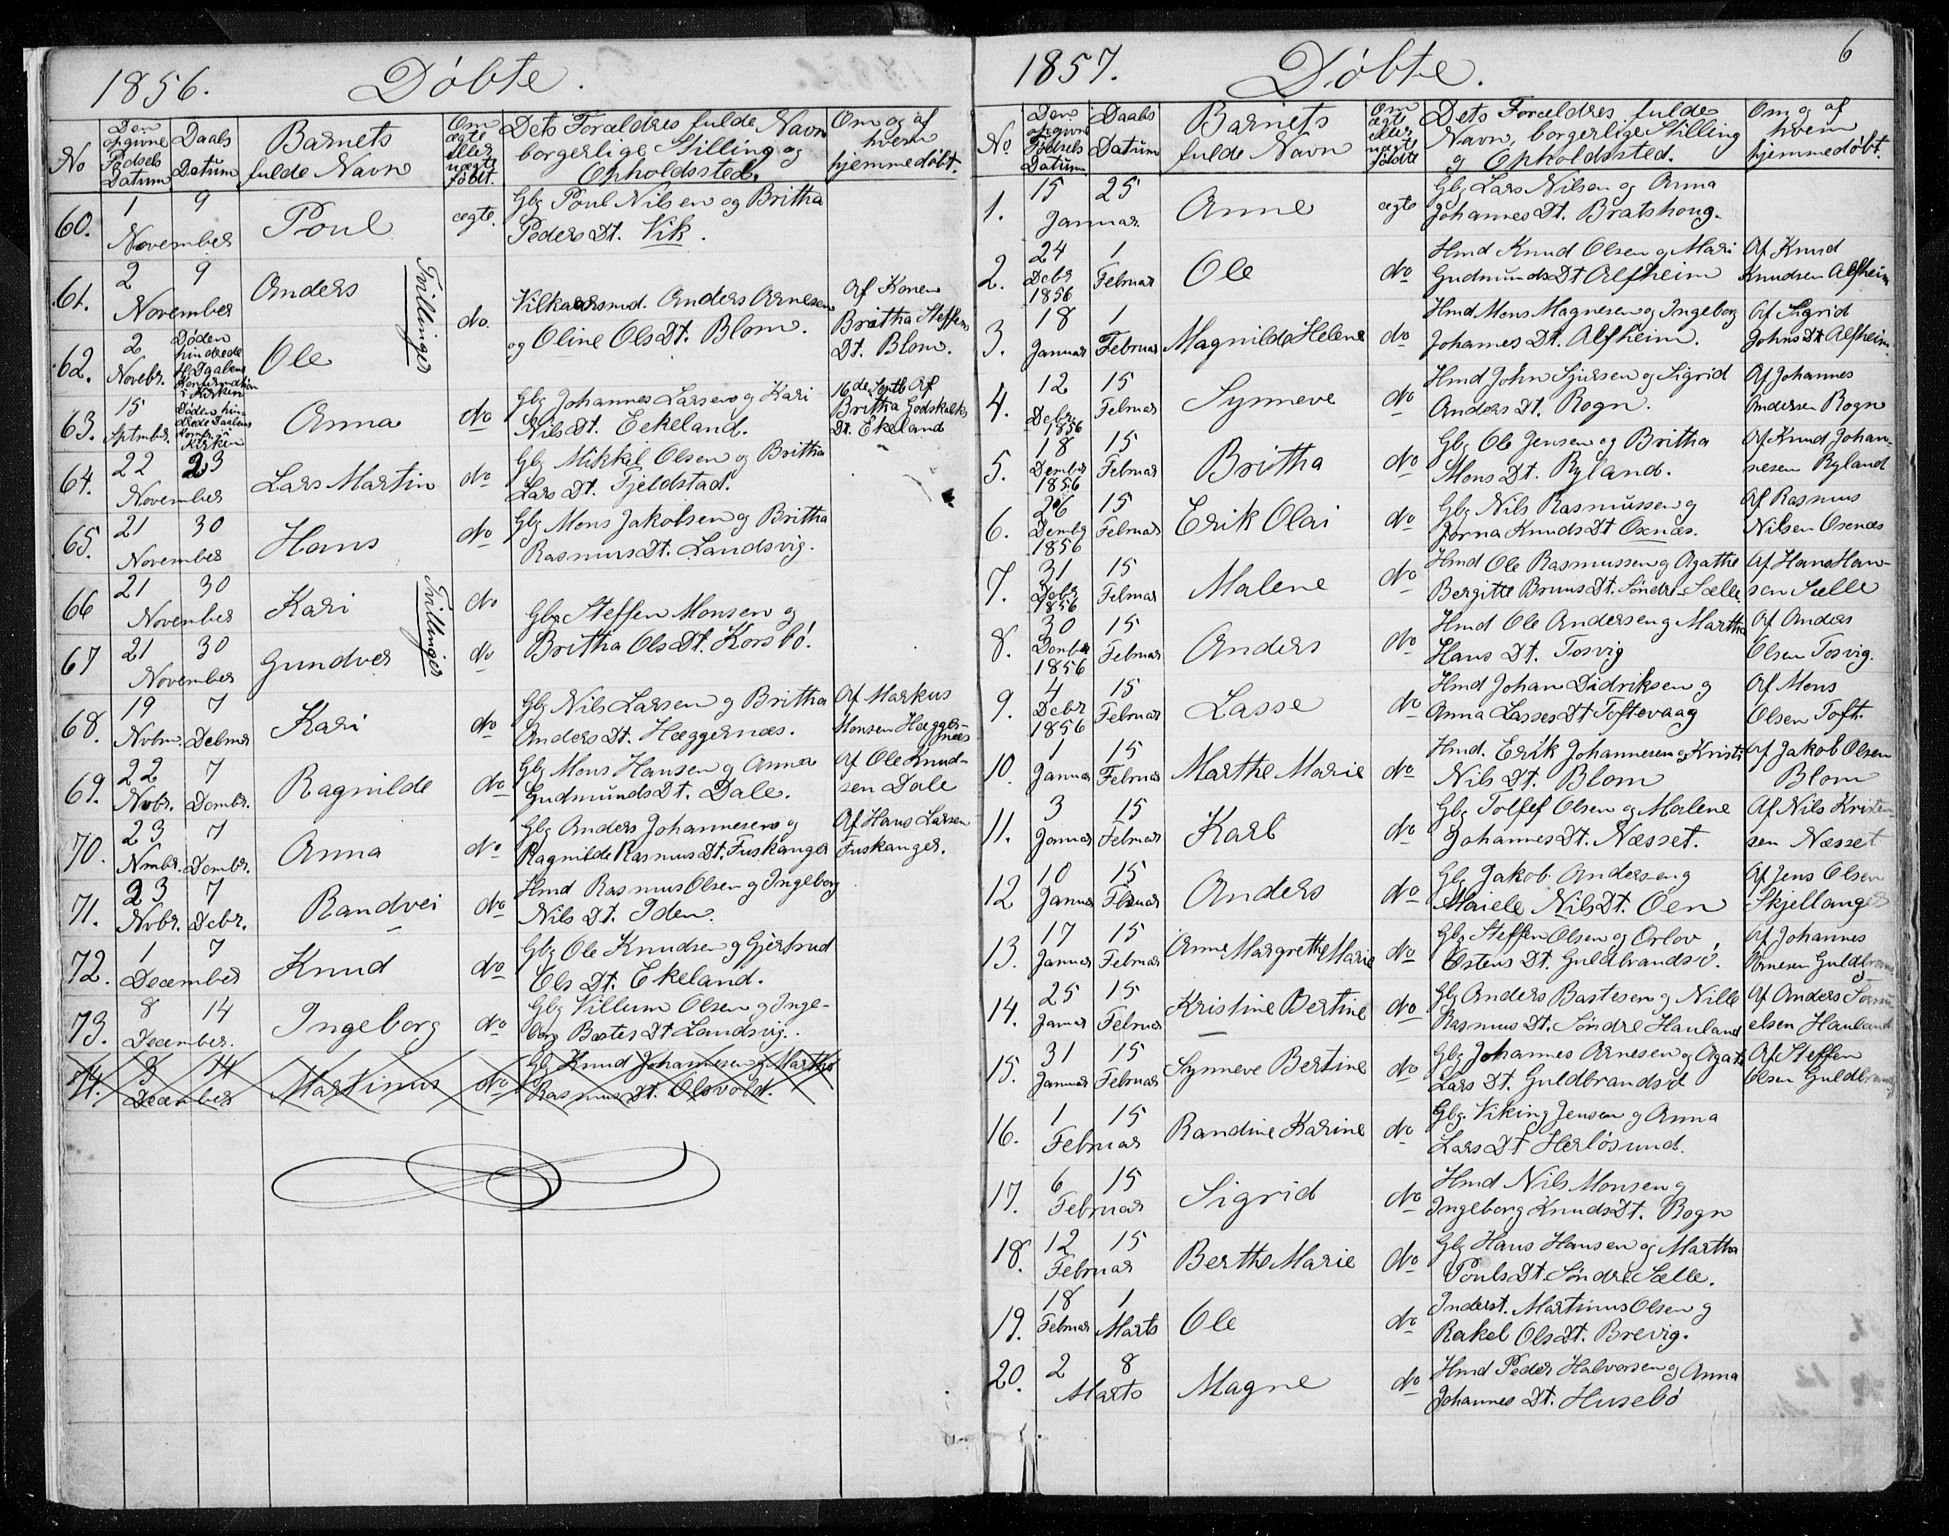 1856. Døbte.
No
Den opgivne Fødsels Datum
Daabs Datum
Barnets fulde Navn
Om ægte eller uægte født.
Dets Forældres fulde Navn borgerlige Stilling og Opholdssted.
Om og af hvem hjemmedøbt.
60. 1 9 November Poul ægte. Gbg Poul Nilsen og Britha
Peders Dt. Vik.
61. 2 9 November Anders Tvillinger do. Vilkaarsmd. Anders Arnesen Af Konen
og Oline Ols Dt. Blom. Britha Steffens
Dt. Blom.
62. 2 Novebr. Døden hindrede Daabens Konfirmation i Kirken Ole
63. 15 Sptmbr. Døden hindrede Daabens Konfr. i Kirken Anna do Gbg Johannes Larsen og Kari 16de Septb Af
Nils Dt. Eekeland. Britha Godskalks
Dt. Ekeland
64. 22 23 November Lars Martin do Gbg Mikkel Olsen og Britha
Lars Dt. Fjeldstad.
65. 21 30 November Hans do Gbg Mons Jakobsen og Britha
Rasmus Dt. Landsvig.
66 21 30 November Kari Tvillinger do Gbg Steffen Monsen og
67 21 30 November Gundver do Britha Ols Dt. Korsbö.
68. 19 Nvbm. 7 Debmr Kari do Gbg Nils Larsen og Britha Af Markus
Anders Dt. Hæggernæs. Monsen Hægger-
næs
69. 22 Nvbr. 7 Dembr. Ragnilde do Gbg Mons Hansen og Anna Af Ole Knud-
Gudmunds Dt. Dale. sen Dale
70. 23 Nmbr. 7 Dembr. Anna do Gbg Anders Johannesen og Af Hans Larsen
Ragnilde Rasmus Dt. Fuskanger Fuskanger.
71. 23 Nvbr. 7 Debr. Randvei do Hmd Rasmus Olsen og Ingeborg
Nils Dt. Iden.
72. 1 7 December Knud do Gbg Ole Knudsen og Gjertrud
Ols Dt. Ekeland.
73. 8 14 December. Ingeborg do Gbg Villum Olsen og Inge-
borg Bastes Dt Landsvig.
74. 8 14 December Martinus do Gbg Knud Johannesen og Martha
Rasmus Dt. Olsvold.
1857. Døbte. 6
No
Den opgivne Fødsels Datum
Daabs Datum
Barnets fulde Navn
Om ægte eller uægte født
Dets Forældres fulde Navn, borgerlige Stilling og Opholdssted.
Om og af hvem hjemmedøbt.
1. 15 25 Januar Anne ægte Gbg Lars Nilsen og Anna
Johannes Dt. Bratshoug.
2. 24 Debr 1856 1 Februar Ole do Hmd Knud Olsen og Mari Af Knud
Gudmunds Dt Alfheim Knudsen Alfheim
3. 18 Januar 1 Februar Magnilde Helene do Hmd Mons Magnesen og Ingeborg Af Sigrid
Johannes Dt. Alfheim. Johns Dt Alfheim.
4. 12 Debr 1856 15 Februar Synneve do Hmd John Sjursen og Sigrid Af Johannes
Anders Dt. Rogn. Andersen Rogn
5. 18 Dembr 1856 15 Februar Britha do Gbg Ole Jensen og Britha Af Knud Johan-
Mons Dt. Ryland. nesen Ryland
6. 26 Dembr 1856 15 Februar Erik Olai do Gbg Nils Rasmussen og Af Rasmus
Jorna Knuds Dt Oxnæs. Nilsen Oxnæs
7. 31 Debr 1856 15 Februar Malene do Hmd Ole Rasmussen og Agathe Af Hans Han-
Bergitte Bruns Dt. Söndre Sælle sen Sælle
8. 30 Dember 1856 15 Februar Anders do Hmd Ole Andersen og Martha Af Anders
Hans Dt. Tosvig Olsen Tosvig.
9. 4 Debr 1856 15 Februar Lasse do Hmd Johan Didriksen og Af Mons
Anna Lasses Dt Toftevaag Olsen Toft.
10. 1 Januar 15 Februar Marthe Marie do Hmd. Erik Johannesen og Kristi Af Jakob Olsen
Nils Dt. Blom Blom
11. 3 Januar 15 Februar Karl do Gbg Tollef Olsen og Malene Af Nils Kristen-
Johannes Dt. Næsset. sen Næsset
12 10 Januar 15 Februar Anders do Gbg Jakob Andersen og Af Jens Olsen
Nils Dt. Oen Skjellanger
13. 17 Januar 15 Februar Anne Margrethe Marie do Gbg Steffen Olsen og Orlov Af Johannes
Ostens Dt. Guldbrandsö. Arnesen Guldbrands
14. 25 Januar 15 Februar Kristine Bertine do Gbg Anders Bastesen og Nille Af Anders
Rasmus Dt. Söndre Hauland elsen Hauland
15. 31 Januar 15 Februar Synneve Bertine do Gbg Johannes Arnesen og Agate Af Steffen
Lars Dt. Guldbrandsö Olsen Guldbrands
16. 1 15 Februar Randine Karine do Gbg. Viking Jensen og Anna
Lars Dt Herlösund.
17. 6 15 Februar Sigrid do Hmd Nils Monsen og
Ingeborg Knuds Dt. Rogn
18. 12 15 Februar Berthe Marie do Gbg Hans Hansen og Martha
Pouls Dt. Söndre Sælle.
19. 18 Februar 1 Marts Ole do Inderst. Martinus Olsen og
Rakel Ols Dt. Brevig.
20. 2 8 Marts Magne do Hmd Peder Halvorsen og Anna
Johannes Dt. Husebö